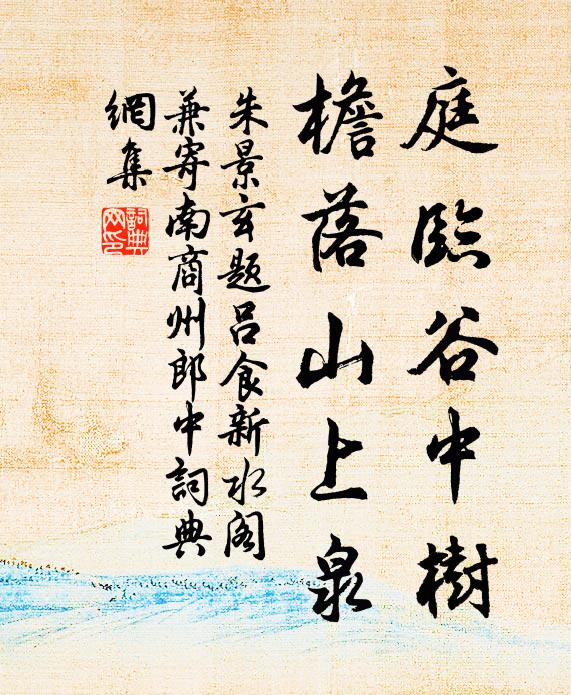 庭臨谷中樹
檐落山上泉
朱景玄題呂食新水閣
兼寄南商州郎中詞典
網集
詞典
网印